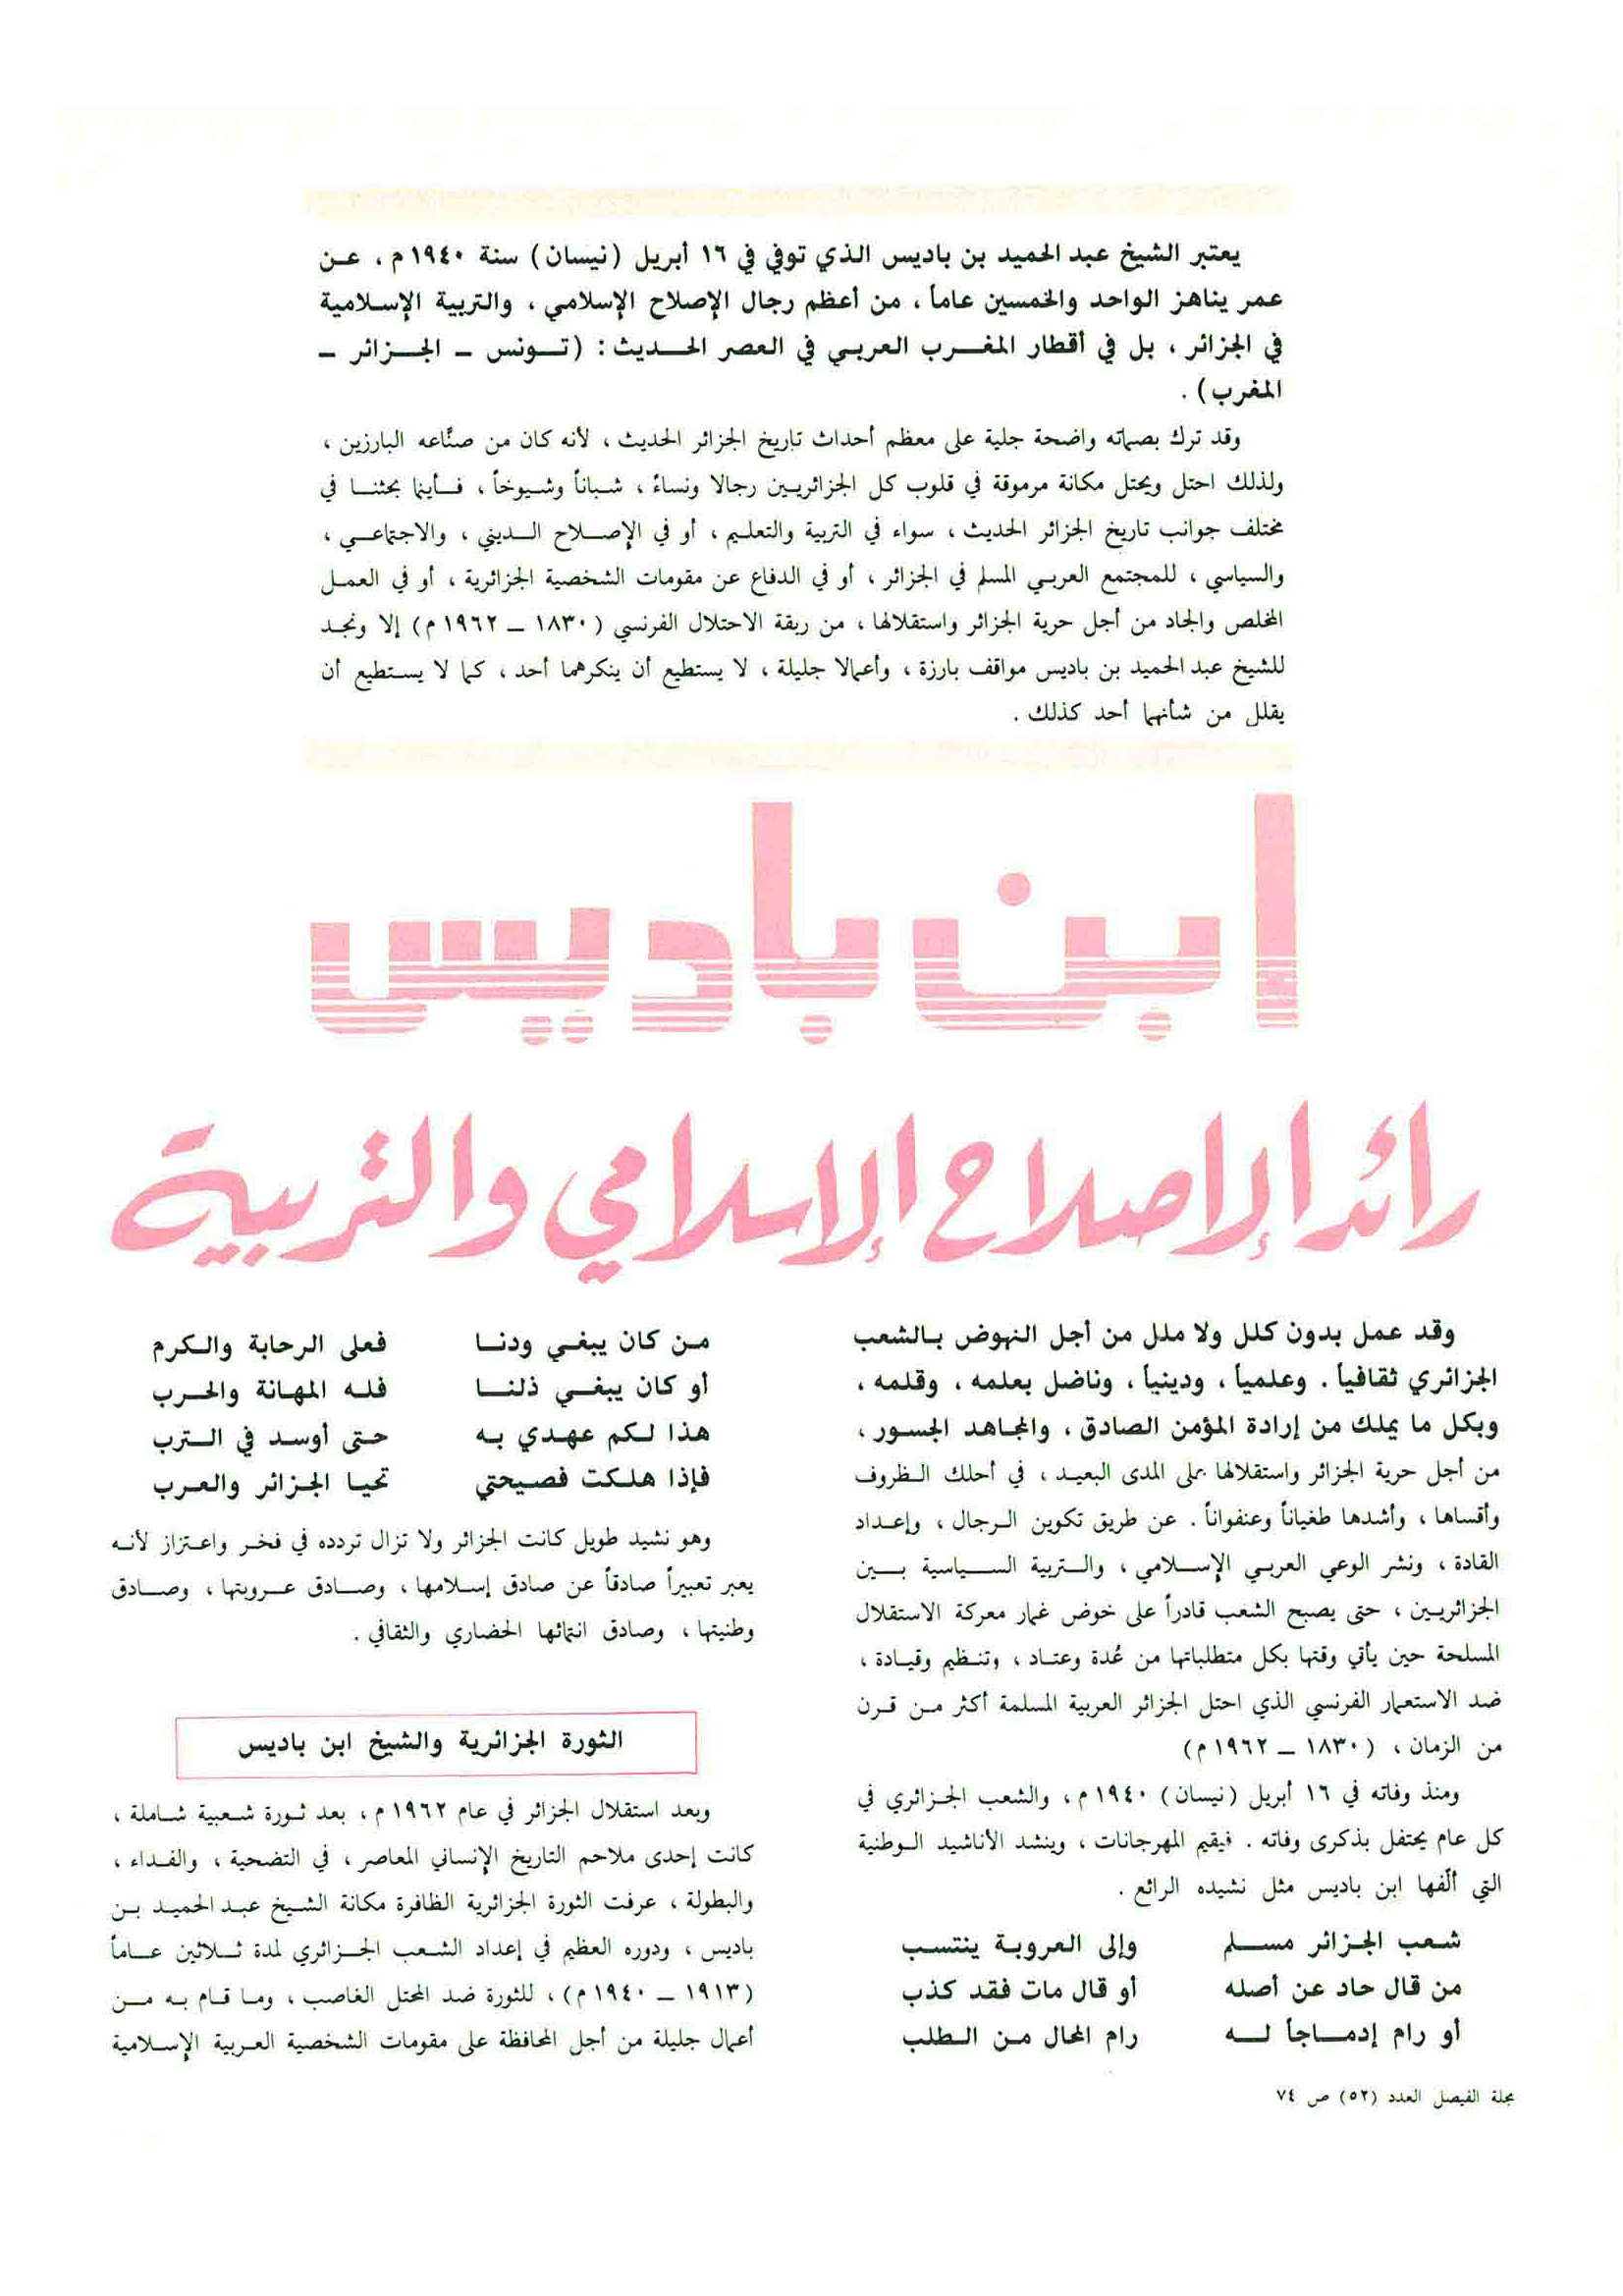 يعتبر الشيخ عبد الحميد بن باديس الذي توفي في ١٦ أبريل (نيسان) سنة ١٩٤٠ م ، عن
عمر يناهز الواحد والخمسين عاماً ، من أعظم رجال الإصلاح الإسلامي ، والتربية الإسلامية
في الجزائر ، بل في أقطار المغرب العربي في العصر الحديث : (تونس – الجزائر –
المغرب) .
وقد ترك بصماته واضحة جلية على معظم أحداث تاريخ الجزائر الحديث ، لأنه كان من صنَّاعه البارزين ،
ولذلك احتل ويحتل مكانة مرموقة في قلوب كل الجزائريين رجالا ونساءً ، شباناً وشيوخاً ، فأينما بحثنا في
مختلف جوانب تاريخ الجزائر الحديث ، سواء في التربية والتعليم ، أو في الإصلاح الديني ، والاجتماعي ،
والسياسي ، للمجتمع العربي المسلم في الجزائر ، أو في الدفاع عن مقومات الشخصية الجزائرية ، أو في العمل
المخلص والجاد من أجل حرية الجزائر واستقلالها ، من ربقة الاحتلال الفرنسي (١٨٣٠ – ١٩٦٢ م) إلا ونجد
للشيخ عبد الحميد بن باديس مواقف بارزة ، وأعمالا جليلة ، لا يستطيع أن ينكرهما أحد ، كما لا يستطيع أن
يقلل من شأنهما أحد كذلك .
ابن باديس
رائد الإصلاح الإسلامي والتربية
وقد عمل بدون كلل ولا ملل من أجل النهوض بالشعب
الجزائري ثقافياً . وعلمياً ، ودينياً ، وناضل بعلمه ، وقلمه ،
وبكل ما يملك من إرادة المؤمن الصادق ، والمجاهد الجسور ،
من أجل حرية الجزائر واستقلالها على المدى البعيد ، في أحلك الظروف
وأقساها ، وأشدها طغياناً وعنفواناً . عن طريق تكوين الرجال ، وإعداد
القادة ، ونشر الوعي العربي الإسلامي ، والتربية السياسية بين
الجزائريين ، حتى يصبح الشعب قادراً على خوض غمار معركة الاستقلال
المسلحة حين يأتي وقتها بكل متطلباتها من عُدة وعتاد ، وتنظيم وقيادة ،
ضد الاستعمار الفرنسي الذي احتل الجزائر العربية المسلمة أكثر من قرن
من الزمان ، (١٨٣٠ – ١٩٦٢ م)
ومنذ وفاته في ١٦ أبريل (نيسان) ١٩٤٠ م ، والشعب الجزائري في
كل عام يحتفل بذكرى وفاته . فيقيم المهرجانات ، وينشد الأناشيد الوطنية
التي ألّفها ابن باديس مثل نشيده الرائع .
شعب الجزائر مسلم وإلى العروبة ينتسب
من قال حاد عن أصله أو قال مات فقد كذب
أو رام إدماجاً له رام المحال من الطلب
من كان يبغي ودنا فعلى الرحابة والكرم
أو كان يبغي ذلنا فله المهانة والحرب
هذا لكم عهدي به حتى أوسد في الترب
فإذا هلكت فصيحتي تحيا الجزائر والعرب
وهو نشيد طويل كانت الجزائر ولا تزال تردده في فخر واعتزاز لأنه
يعبر تعبيراً صادقاً عن صادق إسلامها ، وصادق عروبتها ، وصادق
وطنيتها ، وصادق انتمائها الحضاري والثقافي .
الثورة الجزائرية والشيخ ابن باديس
وبعد استقلال الجزائر في عام ١٩٦٢ م ، بعد ثورة شعبية شاملة ،
كانت إحدى ملاحم التاريخ الإنساني المعاصر ، في التضحية ، والفداء ،
والبطولة ، عرفت الثورة الجزائرية الظافرة مكانة الشيخ عبد الحميد بن
باديس ، ودوره العظيم في إعداد الشعب الجزائري لمدة ثلاثين عاماً
(١٩١٣ – ١٩٤٠ م) ، للثورة ضد المحتل الغاصب ، وما قام به من
أعمال جليلة من أجل المحافظة على مقومات الشخصية العربية الإسلامية
مجلة الفيصل العدد (٥٢) ص ٧٤